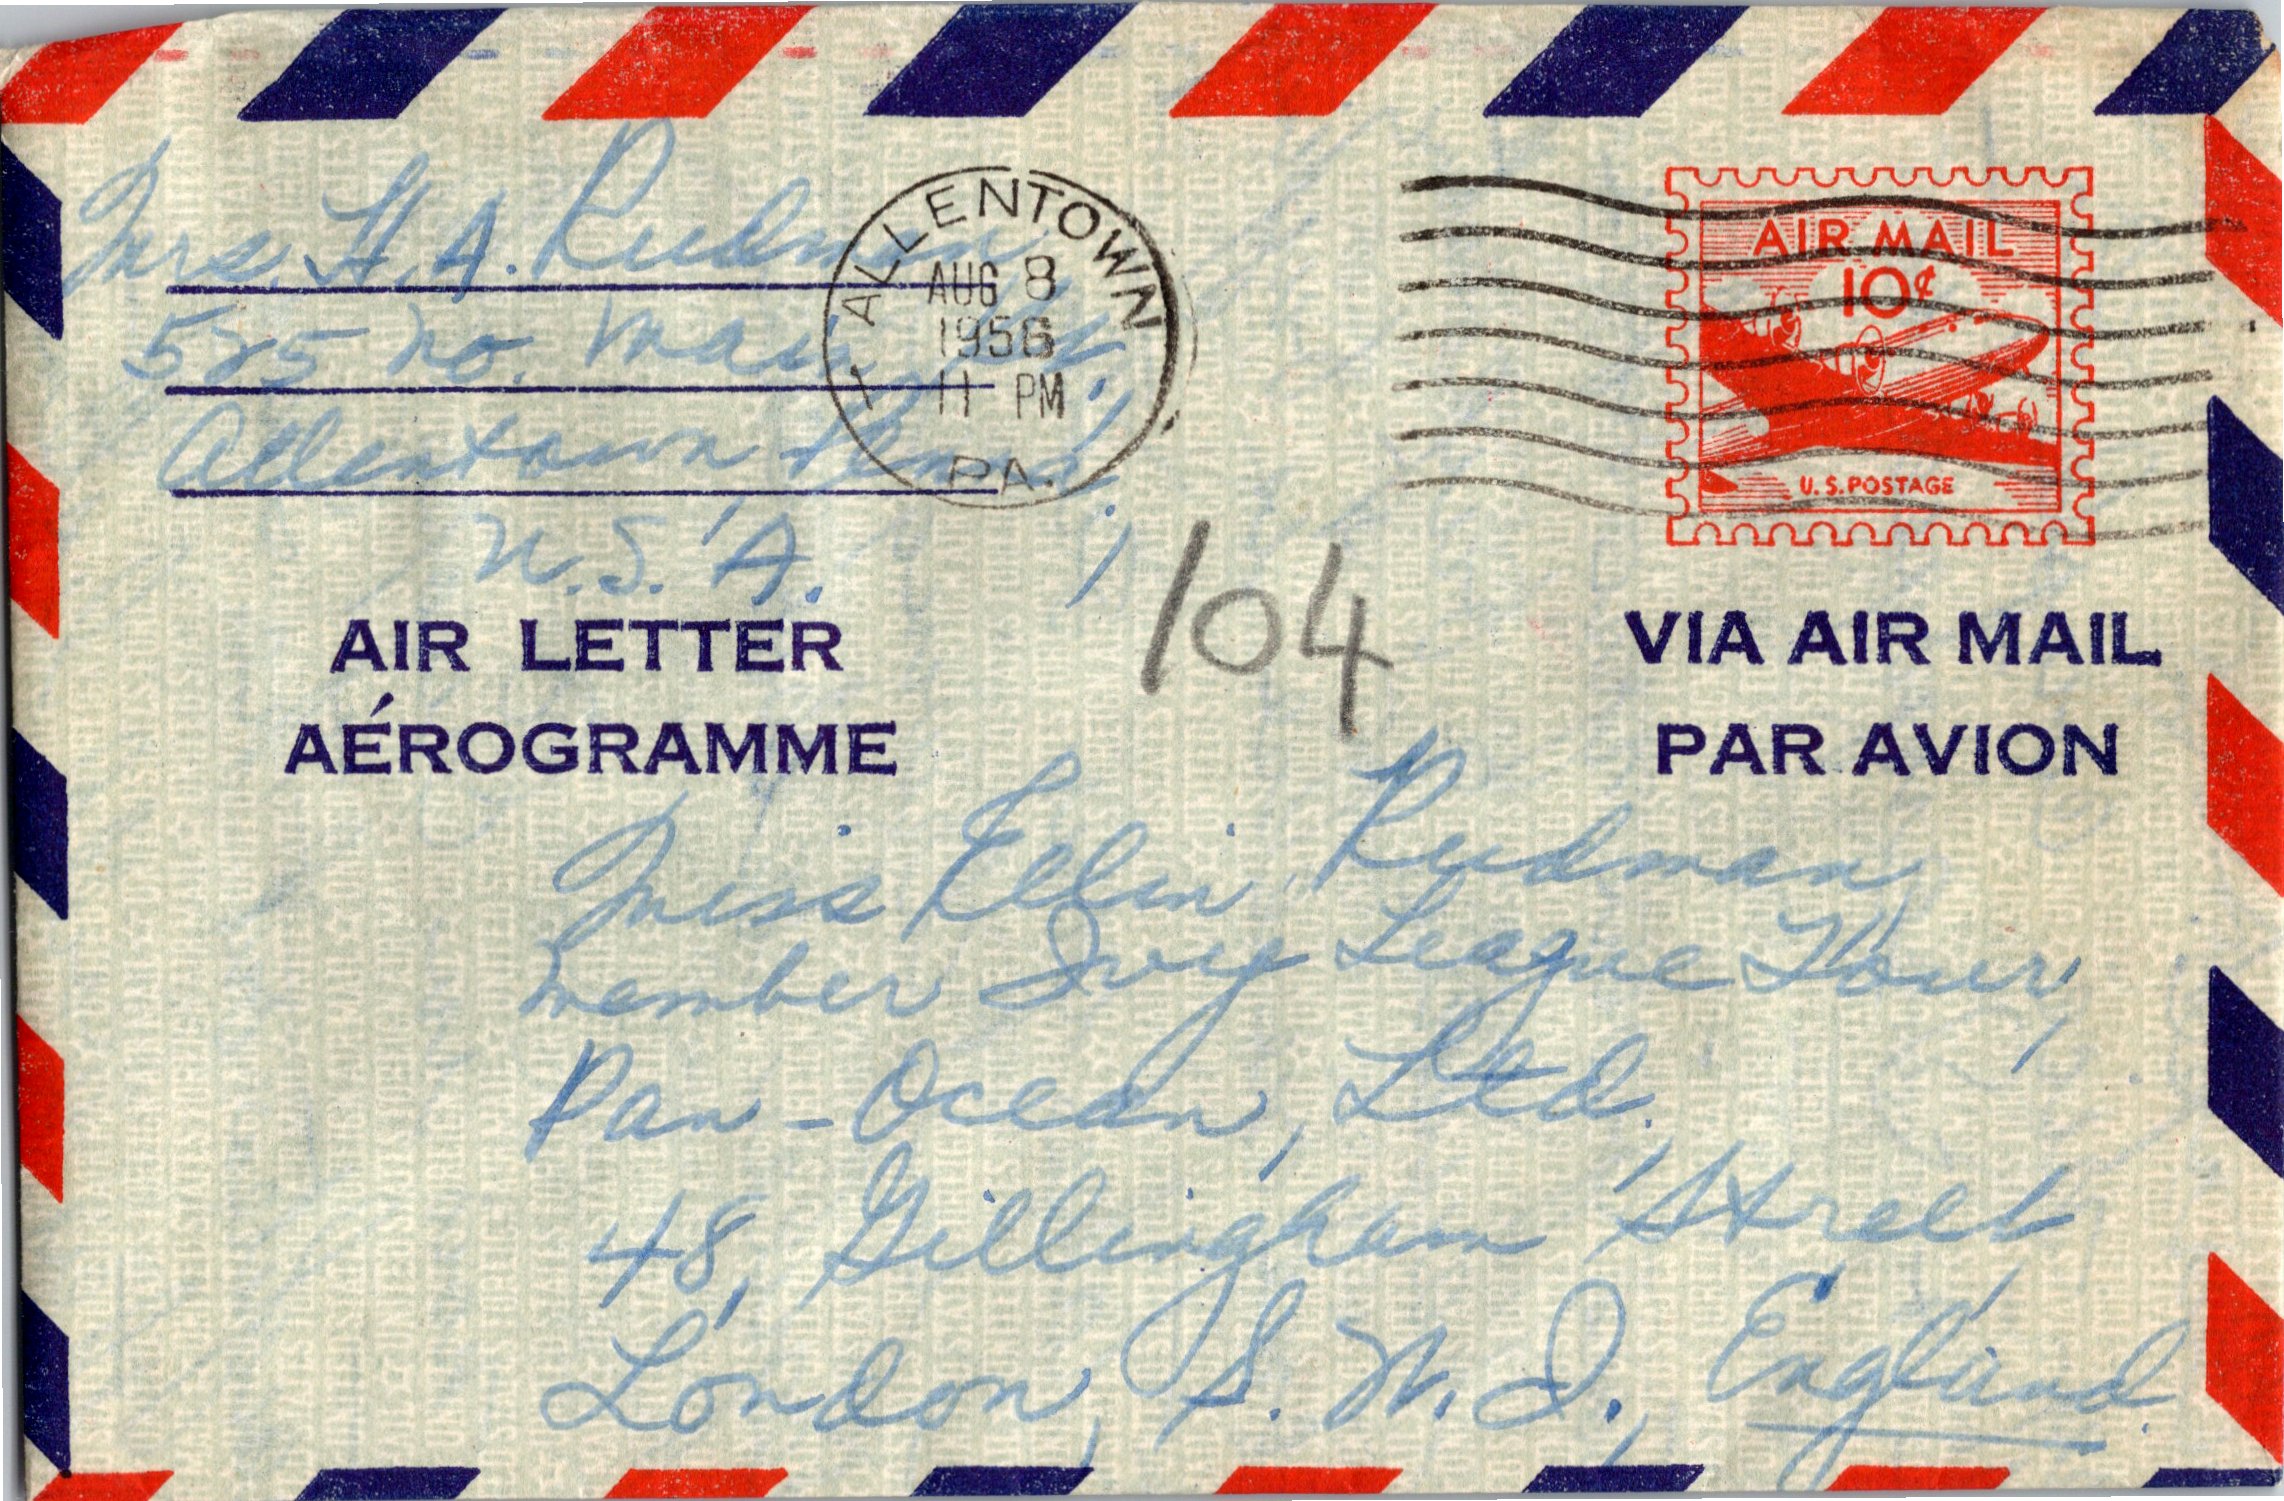 Mrs. H. A. Rudman,
525 No. Main St.,
Allentown, Penna.,
U.S.A.
ALLENTOWN
AUG 8
1956
11 PM
PA.
1
AIR MAIL
10¢
U.S. POSTAGE
104
AIR LETTER
AÉROGRAMME
VIA AIR MAIL
PAR AVION
Miss Ellin Rudman,
member Ivy League Tour,
Pan-Ocean, Ltd.,
48, Gillingham Street,
London, S.W.I., England.